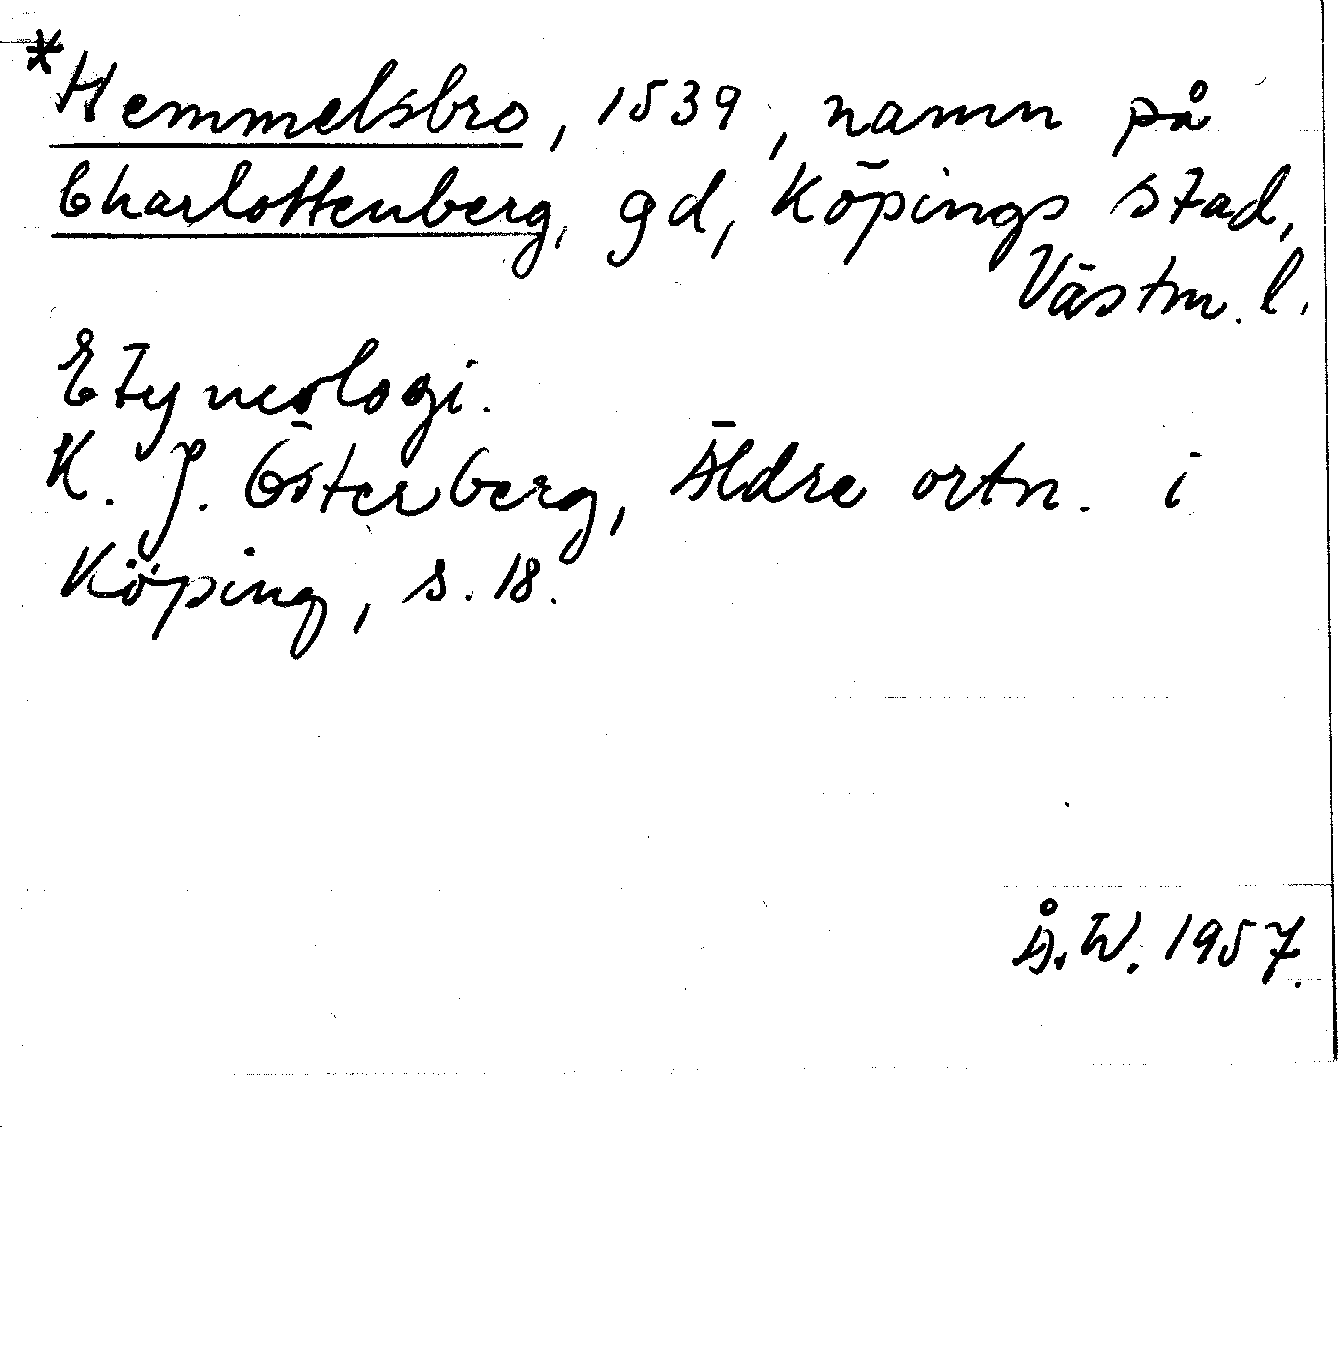 *Hemmelsbro, 1539, namn på
Charlottenberg, gd, Köpings stad,
Västm. l.
Etymologi.
K. J. Österberg, Äldre ortn. i
Köping, s. 18.
Å. W. 1957.